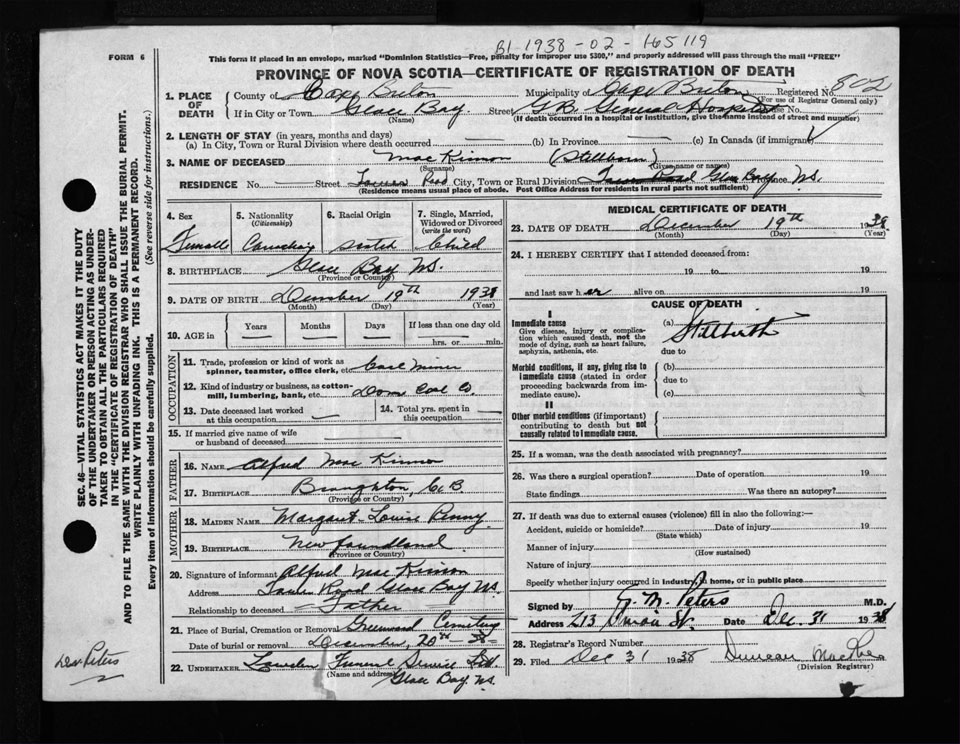 B1-1938-02-165119
FORM 6
This form if placed in an envelope, marked "Dominion Statistics—Free, penalty for improper use $300," and properly addressed will pass through the mail "FREE"
PROVINCE OF NOVA SCOTIA—CERTIFICATE OF REGISTRATION OF DEATH
1. PLACE OF DEATH
County of Cape Breton Municipality of Cape Breton Registered No. 802
(For use of Registrar General only)
If in City or Town Glace Bay Street G.B. General Hospital House No.
(Name) (If death occurred in a hospital or institution, give the name instead of street and number)
2. LENGTH OF STAY (in years, months and days)
(a) In City, Town or Rural Division where death occurred (b) In Province (c) In Canada (if immigrant)
3. NAME OF DECEASED MacKinnon (Stillborn)
(Surname) (Given name or names)
RESIDENCE No. — Street Tower Road City, Town or Rural Division Tower Road Glace Bay N.S.
(Residence means usual place of abode. Post Office Address for residents in rural parts not sufficient)
4. Sex Female
5. Nationality (Citizenship) Canadian
6. Racial Origin Scotch
7. Single, Married, Widowed or Divorced (write the word) Child
8. BIRTHPLACE Glace Bay N.S.
(Province or Country)
9. DATE OF BIRTH December 19th 1938
(Month) (Day) (Year)
10. AGE in Years Months Days If less than one day old
— — — hrs. or min.
OCCUPATION
11. Trade, profession or kind of work as spinner, teamster, office clerk, etc. Coal Miner
12. Kind of industry or business, as cotton-mill, lumbering, bank, etc. Dom Coal Co.
13. Date deceased last worked at this occupation —
14. Total yrs. spent in this occupation —
15. If married give name of wife or husband of deceased —
FATHER
16. NAME Alfred MacKinnon
17. BIRTHPLACE Broughton, C.B.
(Province or Country)
MOTHER
18. MAIDEN NAME Margaret Louise Penny
19. BIRTHPLACE Newfoundland
(Province or Country)
20. Signature of informant Alfred MacKinnon
Address Tower Road Glace Bay N.S.
Relationship to deceased Father
21. Place of Burial, Cremation or Removal Greenwood Cemetery
Date of burial or removal December 20th 38
22. UNDERTAKER Funeral Service Ltd.
(Name and address) Glace Bay N.S.
MEDICAL CERTIFICATE OF DEATH
23. DATE OF DEATH December 19th 1938
(Month) (Day) (Year)
24. I HEREBY CERTIFY that I attended deceased from:
19 to 19
and last saw her alive on 19
CAUSE OF DEATH
I
Immediate cause (a) Stillbirth
Give disease, injury or complication which caused death, not the mode of dying, such as heart failure, asphyxia, asthenia, etc.
due to
Morbid conditions, if any, giving rise to immediate cause (stated in order proceeding backwards from immediate cause)
(b)
due to
(c)
II
Other morbid conditions (if important) contributing to death but not causally related to immediate cause.
25. If a woman, was the death associated with pregnancy?
26. Was there a surgical operation? Date of operation 19
State findings Was there an autopsy?
27. If death was due to external causes (violence) fill in also the following:—
Accident, suicide or homicide? Date of injury 19
(State which)
Manner of injury
(How sustained)
Nature of injury
Specify whether injury occurred in industry, in home, or in public place
Signed by M. Peters M.D.
Address 213 Union St. Date Dec. 31 1938
28. Registrar's Record Number
29. Filed Dec 31 1938 Duncan MacRae
(Division Registrar)
SEC. 46—VITAL STATISTICS ACT MAKES IT THE DUTY
OF THE UNDERTAKER OR PERSON ACTING AS UNDER-
TAKER TO OBTAIN ALL THE PARTICULARS REQUIRED
IN THE "CERTIFICATE OF REGISTRATION OF DEATH"
AND TO FILE THE SAME WITH THE DIVISION REGISTRAR WHO SHALL ISSUE THE BURIAL PERMIT.
WRITE PLAINLY WITH UNFADING INK. THIS IS A PERMANENT RECORD.
Every item of information should be carefully supplied. (See reverse side for instructions.)
Peters